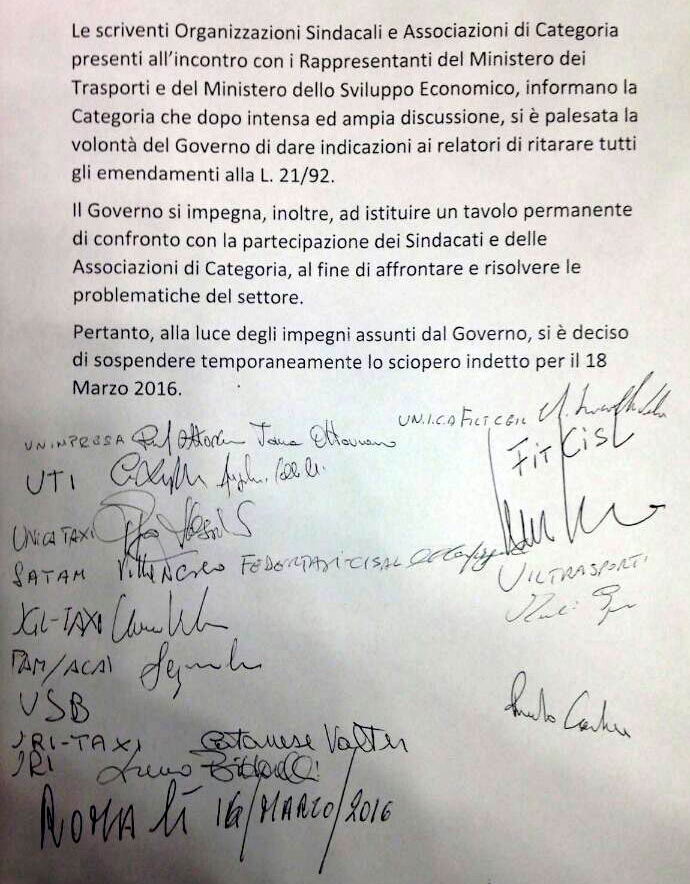 Le scriventi Organizzazioni Sindacali e Associazioni di Categoria
presenti all'incontro con i Rappresentanti del Ministero dei
Trasporti e del Ministero dello Sviluppo Economico, informano la
Categoria che dopo intensa ed ampia discussione, si è palesata la
volontà del Governo di dare indicazioni ai relatori di ritarare tutti
gli emendamenti alla L. 21/92.
Il Governo si impegna, inoltre, ad istituire un tavolo permanente
di confronto con la partecipazione dei Sindacati e delle
Associazioni di Categoria, al fine di affrontare e risolvere le
problematiche del settore.
Pertanto, alla luce degli impegni assunti dal Governo, si è deciso
di sospendere temporaneamente lo sciopero indetto per il 18
Marzo 2016.
UN.I.CA FILT CGIL
UNIMPRESA
FIT CISL
UTI
UNICA TAXI
SATAM FEDERTAXI CISAL
UILTRASPORTI
UGL-TAXI
TAM/ACAI
USB
URI-TAXI Catanese Valter
URI
ROMA lì 16/MARZO/2016